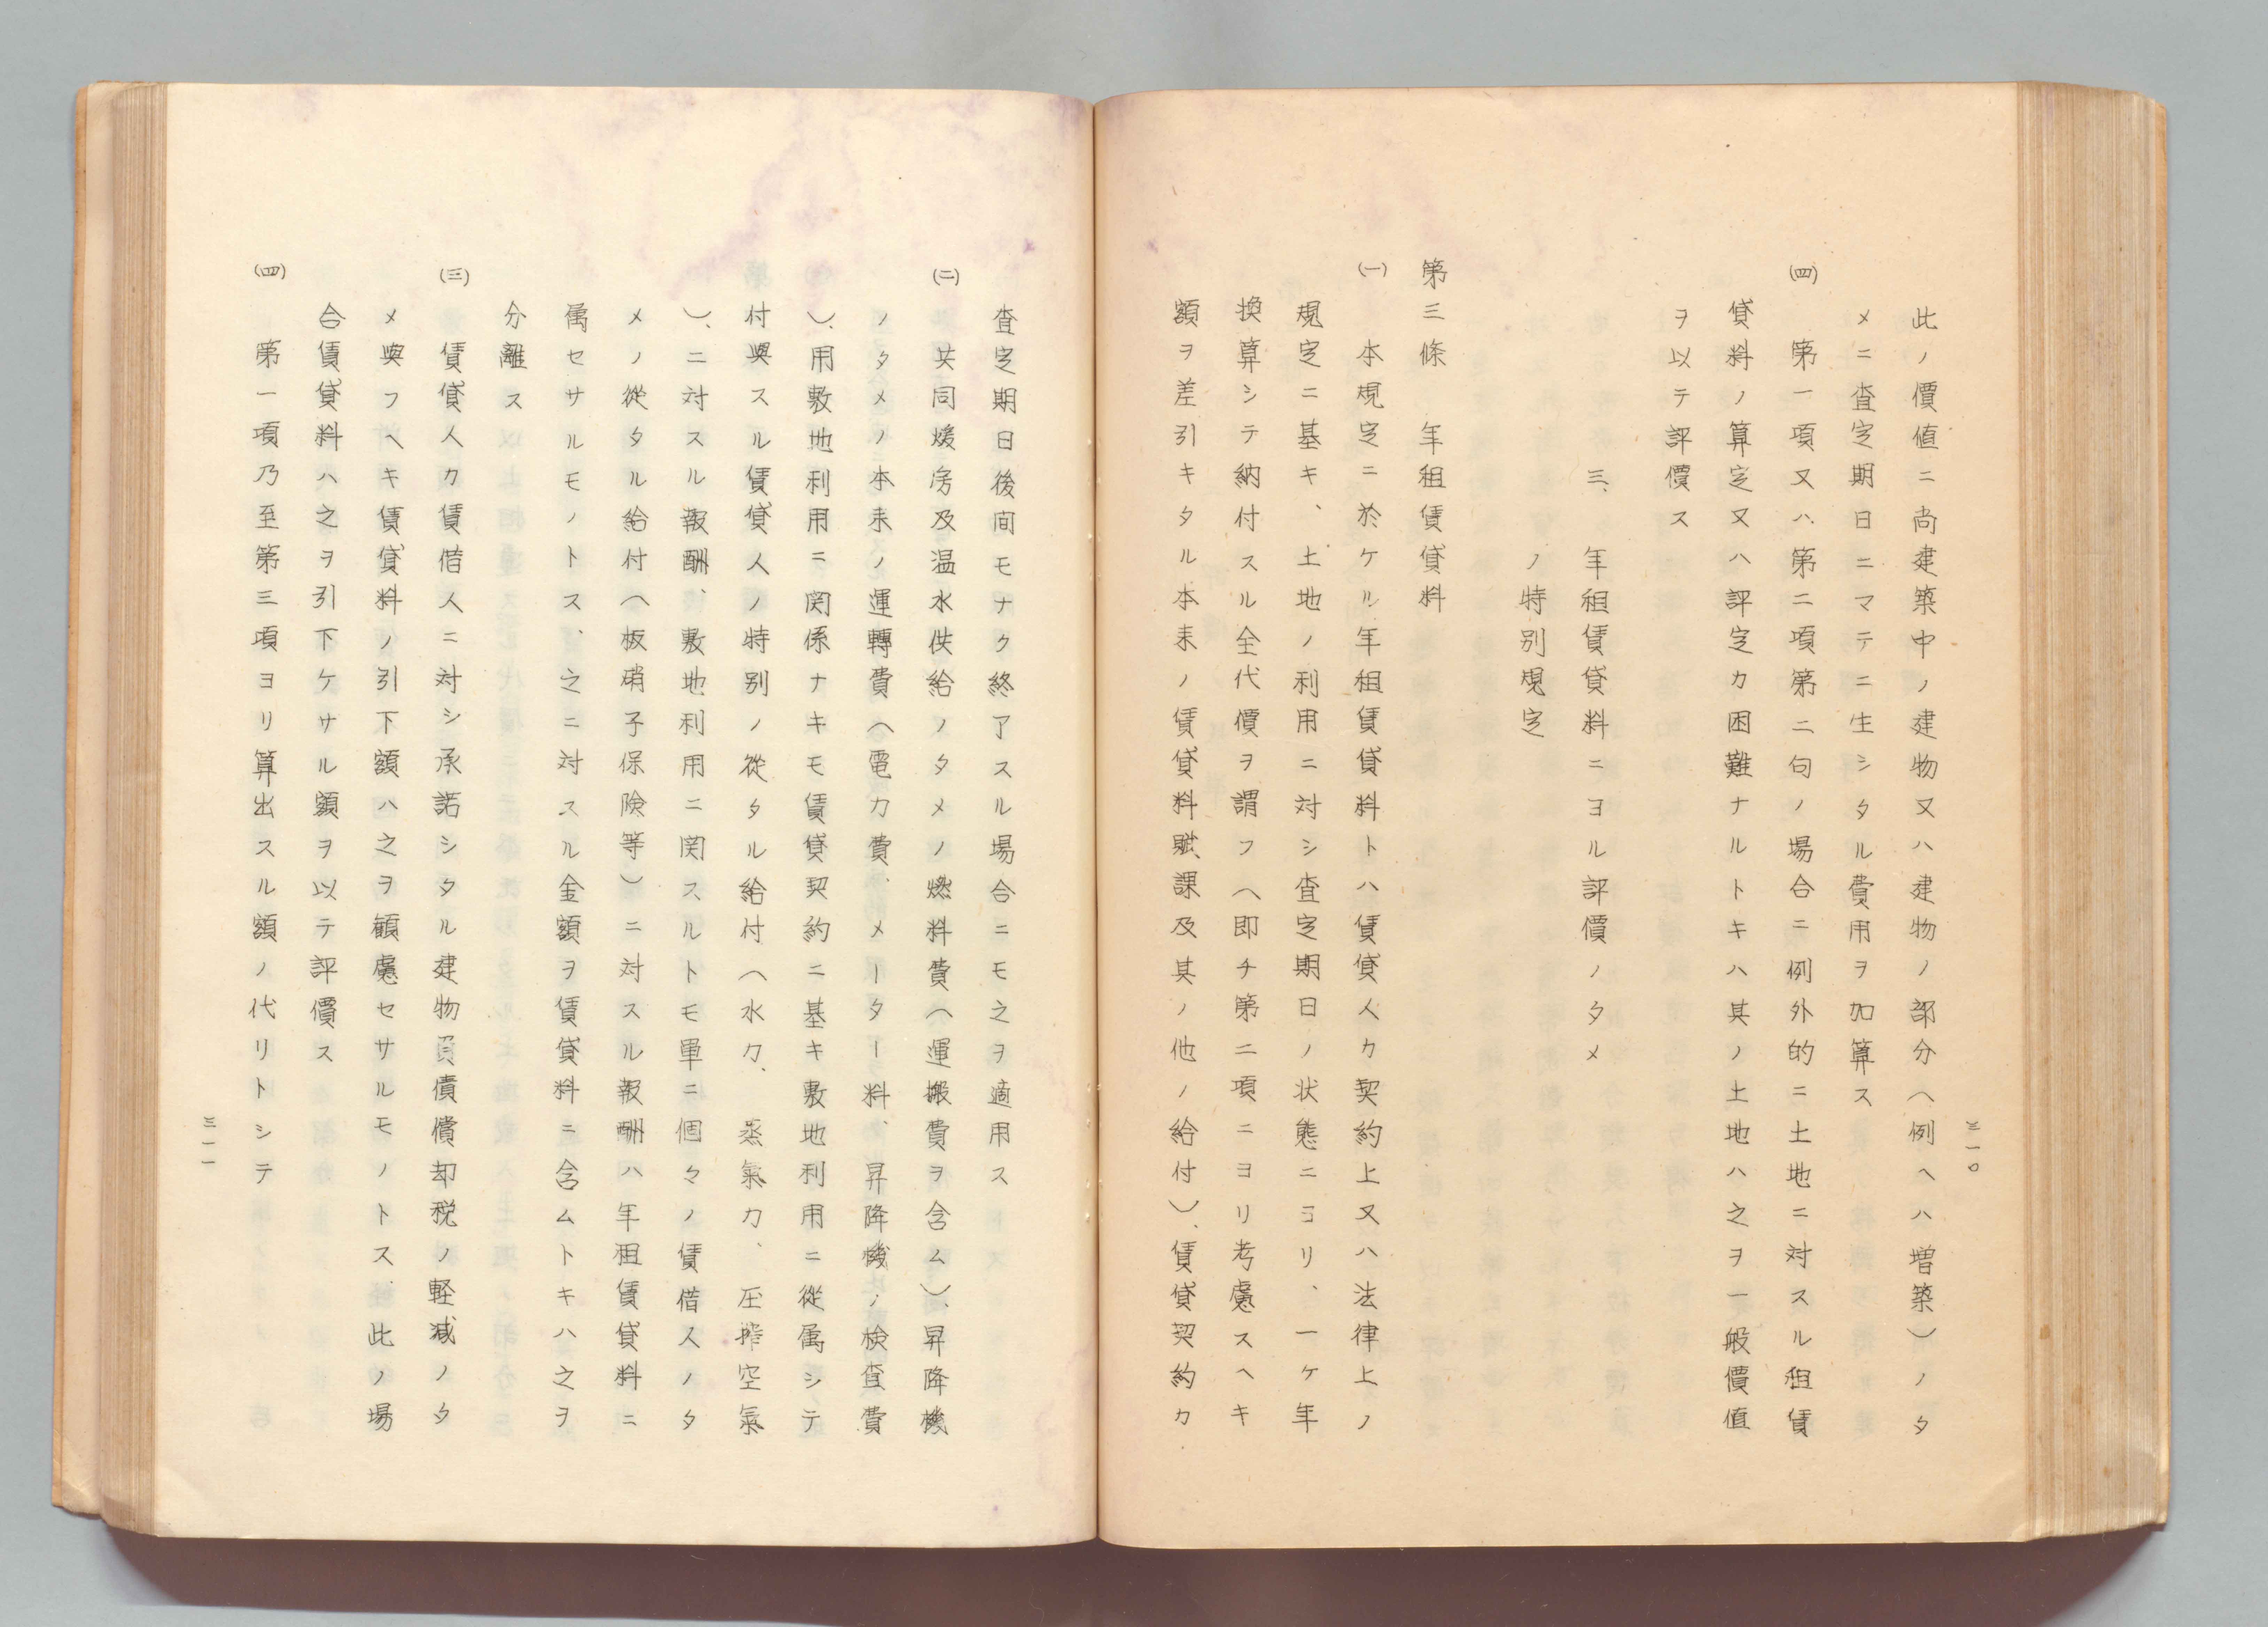 此ノ價値ニ尚建築中ノ建物又ハ建物ノ部分（例ヘハ増築）ノタ
メニ査定期日ニマテニ生シタル費用ヲ加算ス
(四) 第一項又ハ第二項第二句ノ場合ニ例外的ニ土地ニ対スル租賃
貸料ノ算定又ハ評定カ困難ナルトキハ其ノ土地ハ之ヲ一般價値
ヲ以テ評價ス
三、年租賃貸料ニヨル評價ノタメ
ノ特別規定
第三條 年租賃貸料
(一) 本規定ニ於ケル年租賃貸料トハ賃貸人カ契約上又ハ法律上ノ
規定ニ基キ、土地ノ利用ニ対シ査定期日ノ状態ニヨリ、一ケ年
換算シテ納付スル全代價ヲ謂フ（即チ第二項ニヨリ考慮スヘキ
額ヲ差引キタル本来ノ賃貸料賦課及其ノ他ノ給付）、賃貸契約カ
三一〇
査定期日後間モナク終了スル場合ニモ之ヲ適用ス
(二) 共同煖房及温水供給ノタメノ燃料費（運搬費ヲ含ム）、昇降機
ノタメノ本来ノ運轉費（電力費、メーター料、昇降機ノ検査費
）、用敷地利用ニ関係ナキモ賃貸契約ニ基キ敷地利用ニ從属シテ
付與スル賃貸人ノ特別ノ從タル給付（水力、蒸氣力、圧搾空氣
）、ニ対スル報酬、敷地利用ニ関スルトモ単ニ個々ノ賃借人ノタ
メノ從タル給付（板硝子保険等）ニ対スル報酬ハ年租賃貸料ニ
属セサルモノトス、之ニ対スル金額ヲ賃貸料ニ含ムトキハ之ヲ
分離ス
(三) 賃貸人カ賃借人ニ対シ承諾シタル建物負債償却税ノ軽減ノタ
メ與フヘキ賃貸料ノ引下額ハ之ヲ顧慮セサルモノトス、此ノ場
合賃貸料ハ之ヲ引下ケサル額ヲ以テ評價ス
(四) 第一項乃至第三項ヨリ算出スル額ノ代リトシテ
三一一